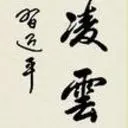 凌雲
習近平